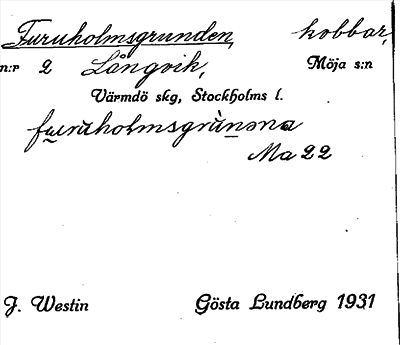 Furuholmsgrunden, kobbar,
n:r 2 Långvik, Möja s:n
Värmdö skg, Stockholms l.
furùholmsgrùnəna
Ma 22
J. Westin Gösta Lundberg 1931